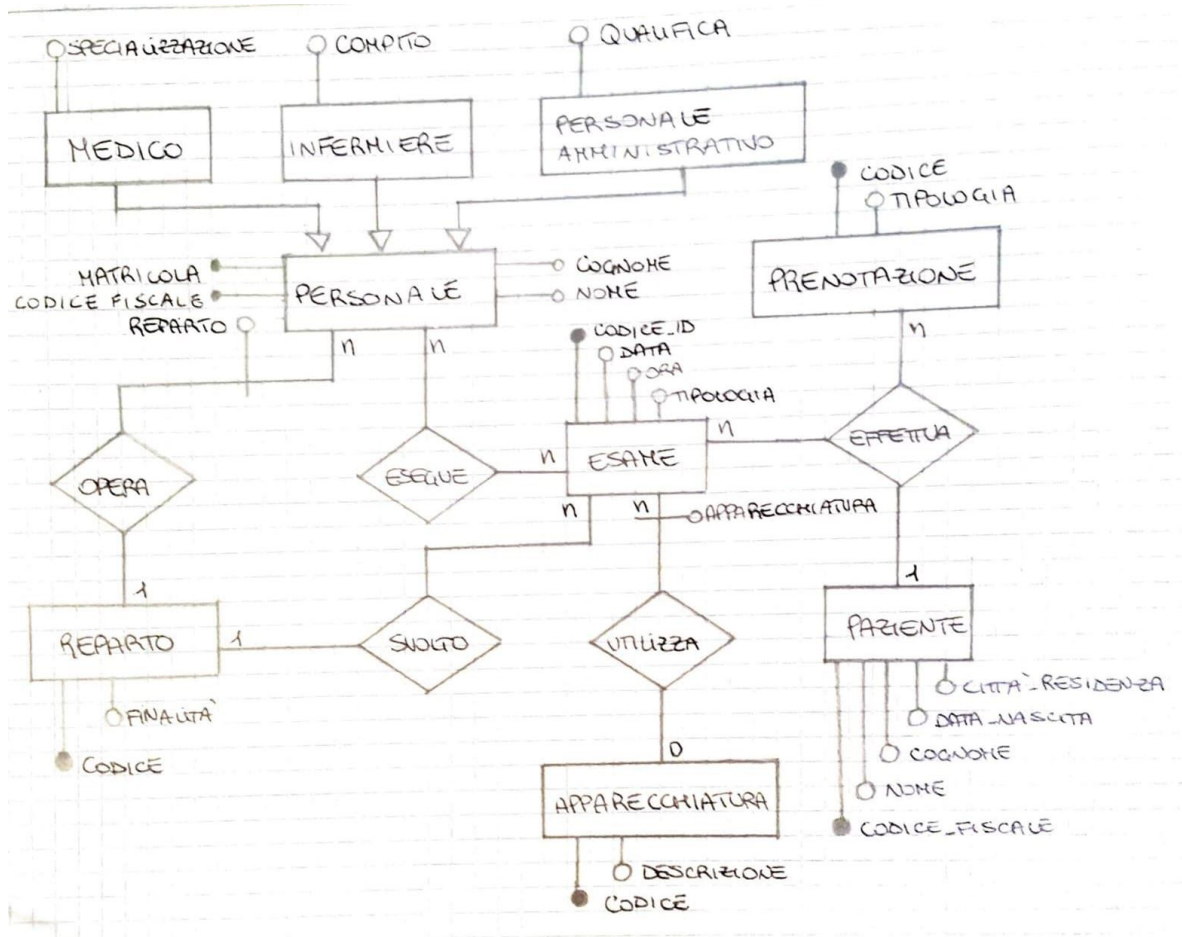 SPECIALIZZAZIONE
COMPITO
QUALIFICA
MEDICO
INFERMIERE
PERSONALE
AMMINISTRATIVO
CODICE
TIPOLOGIA
PRENOTAZIONE
MATRICOLA
CODICE FISCALE
REPARTO
PERSONALE
COGNOME
NOME
n
n
n
CODICE_ID
DATA
ORA
TIPOLOGIA
ESAME
n
EFFETTUA
OPERA
ESEGUE
n
n
n
APPARECCHIATURA
1
1
REPARTO
1
SVOLTO
UTILIZZA
PAZIENTE
FINALITÀ
CODICE
CITTA'_RESIDENZA
DATA_NASCITA
COGNOME
NOME
CODICE_FISCALE
0
APPARECCHIATURA
DESCRIZIONE
CODICE